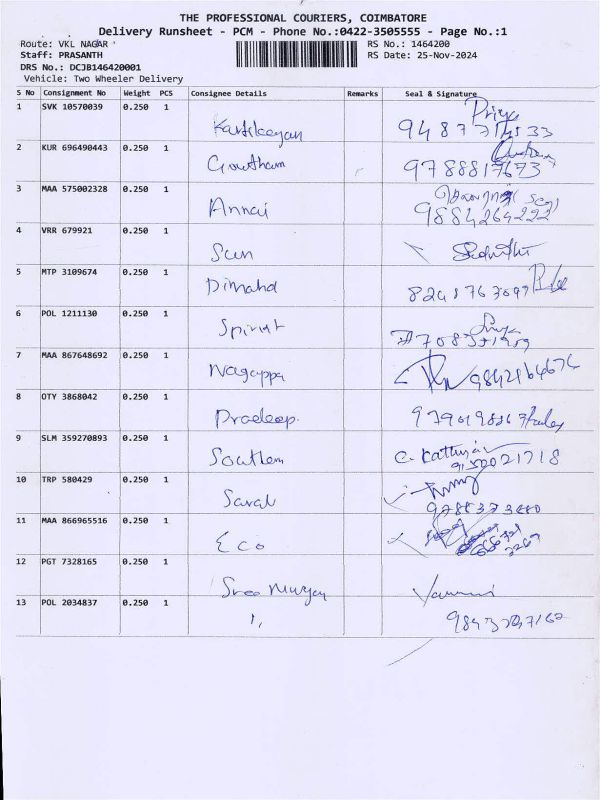 THE PROFESSIONAL COURIERS, COIMBATORE
Delivery Runsheet - PCM - Phone No.:0422-3505555 - Page No.:1
Route: VKL NAGAR RS No.: 1464200
Staff: PRASANTH RS Date: 25-Nov-2024
DRS No.: DCJB146420001
Vehicle: Two Wheeler Delivery
S No Consignment No Weight PCS Consignee Details Remarks Seal & Signature
1 SVK 10570039 0.250 1 Priya
Kartikeeyan
2 KUR 696490443 0.250 1
Gowtham
3 MAA 575002328 0.250 1
Annai 9884264222
4 VRR 679921 0.250 1
Sun
5 MTP 3109674 0.250 1
6 POL 1211130 0.250 1
Spirit
7 MAA 867648692 0.250 1
Nagappa 9842164674
8 OTY 3868042 0.250 1
Pradeep
9 SLM 359270893 0.250 1
Southern
10 TRP 580429 0.250 1
Saral
11 MAA 866965516 0.250 1
Eco
12 PGT 7328165 0.250 1
Sree Murugan
13 POL 2034837 0.250 1